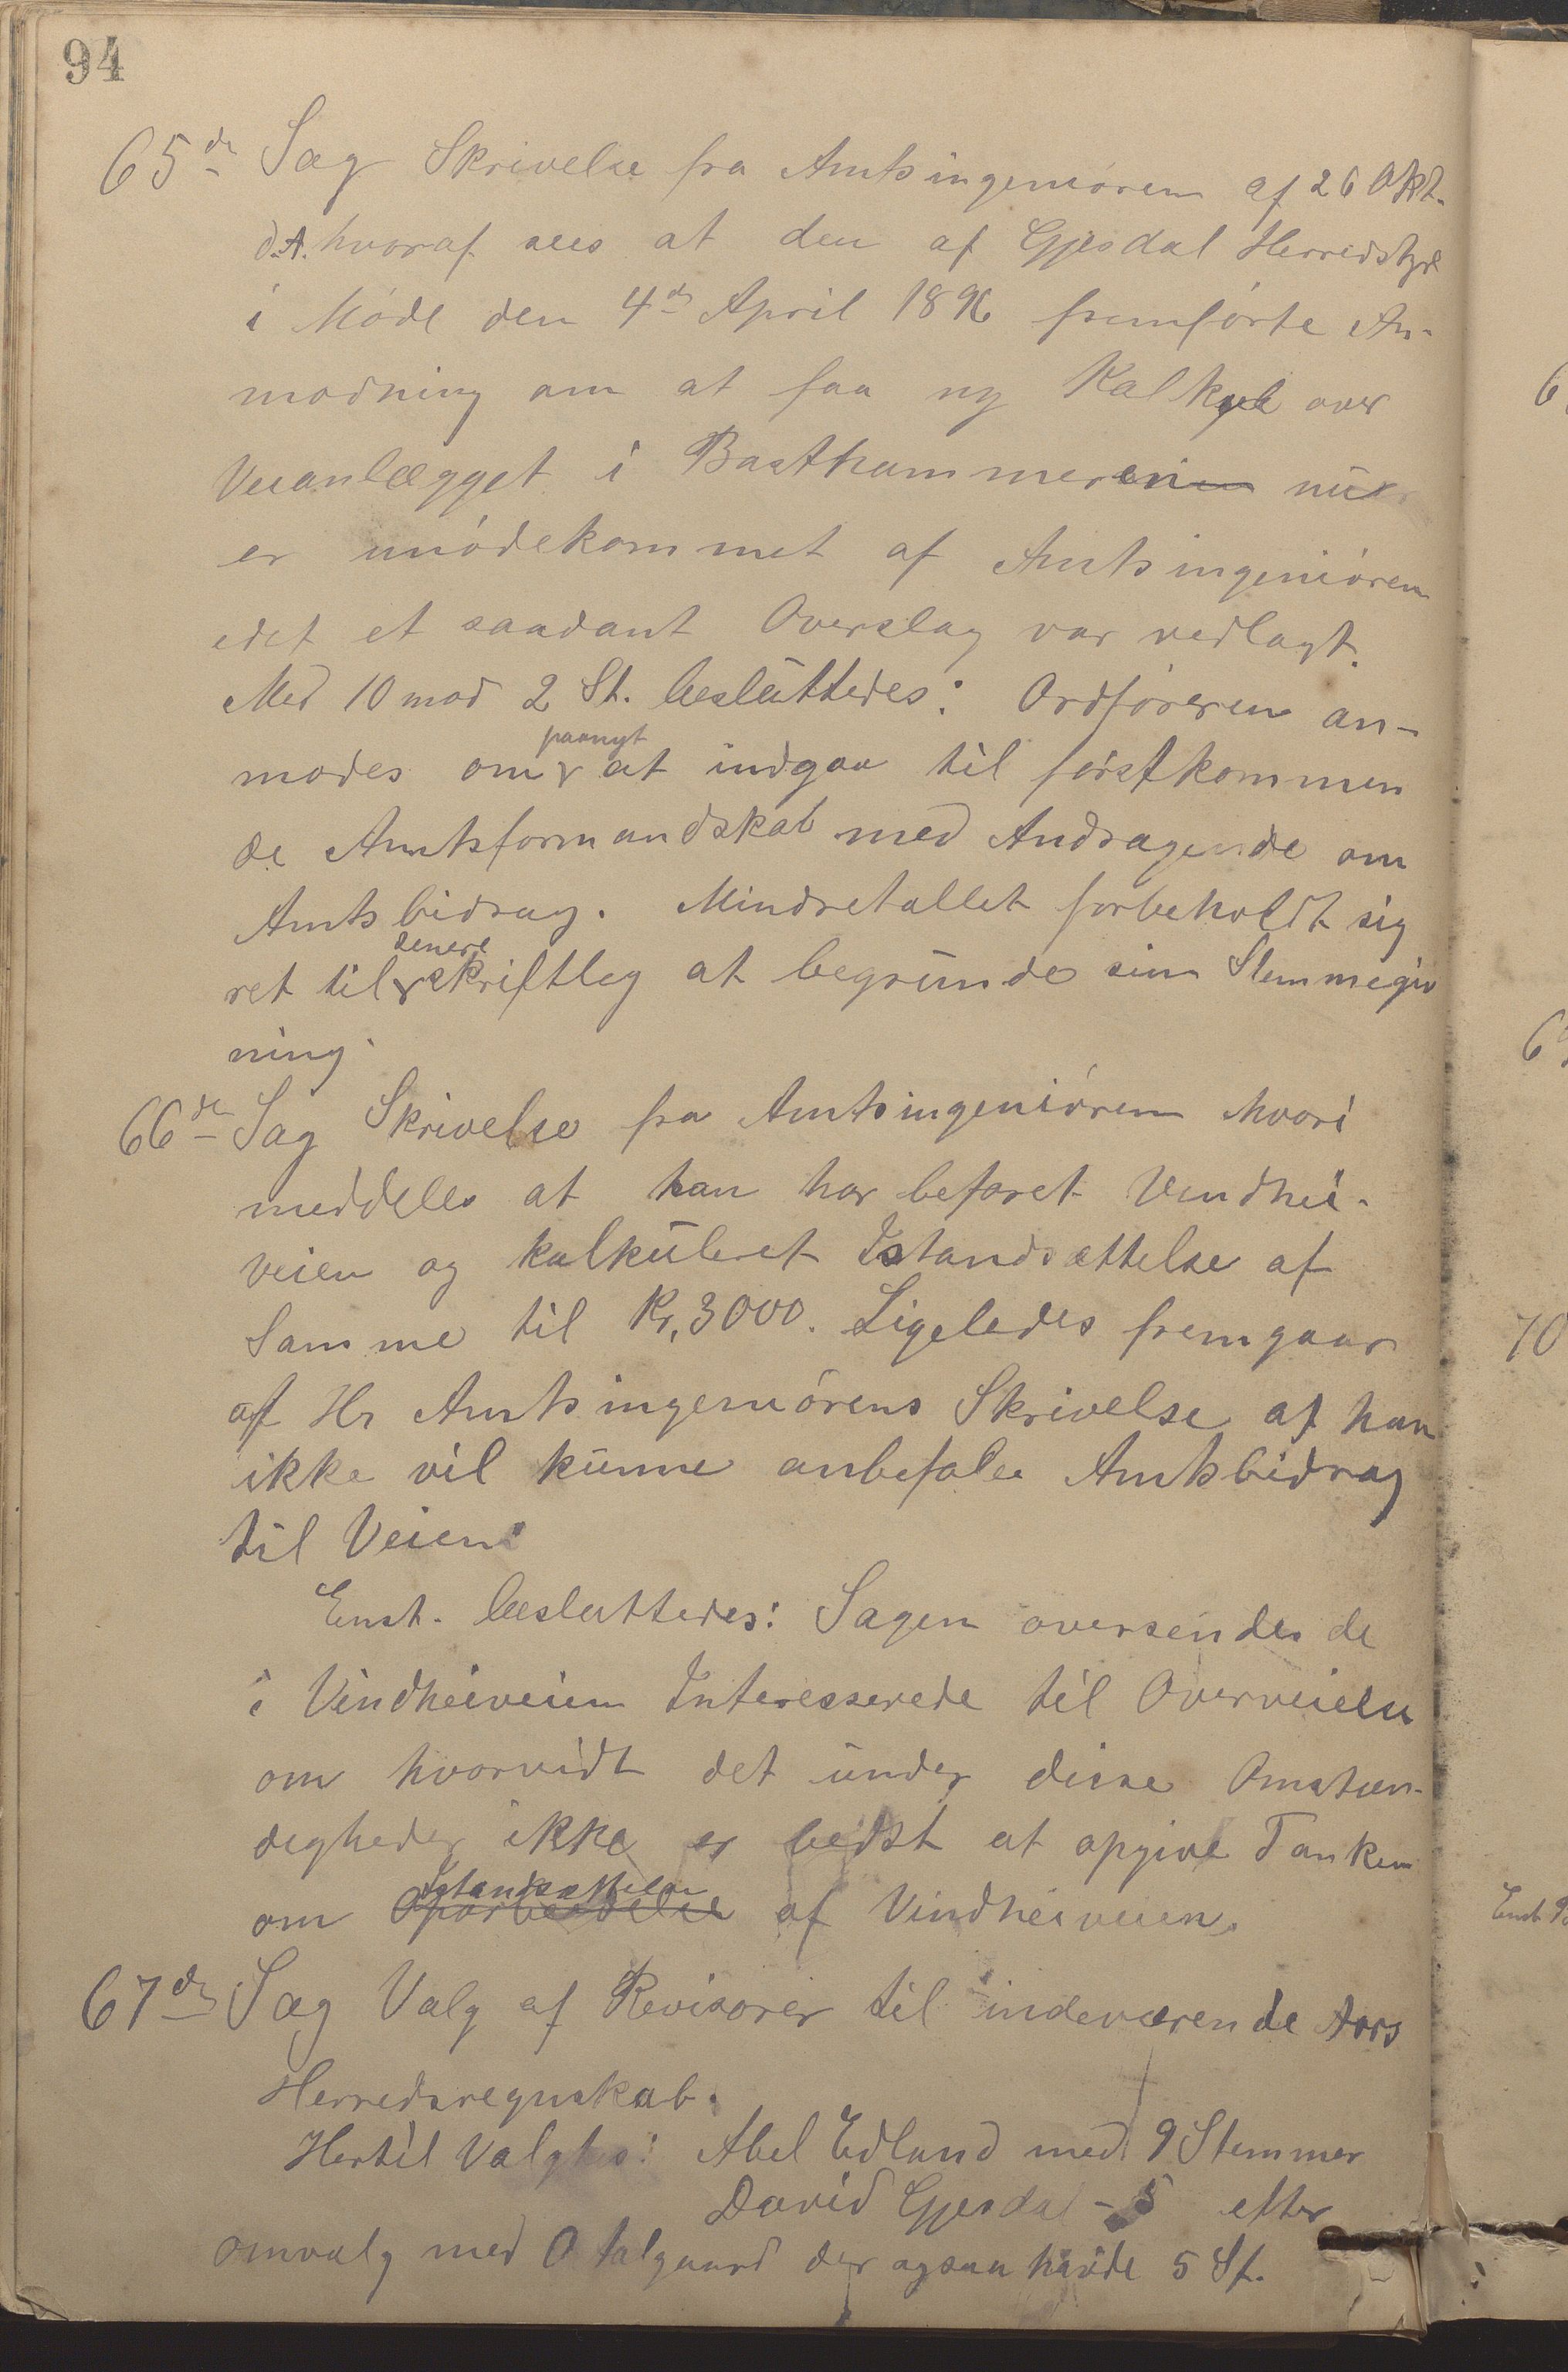 94
65de Sag Skrivelse fra Amtsingeniøren af 26 Okt.
d.A. hvoraf sees at den af Gjesdal Herredstyre
i Møde den 4de April 1896 fremførte An-
modning om at faa ny Kalkyl over
Veianlægget i Basthammeren nu
er imødekommet af Amtsingeniøren
idet et saadant Overslag var vedlagt.
Med 10 mod 2 St. besluttedes: Ordføreren an-
modes om paanyt at indgaa til førstkommen
de Amtsformandskab med Andragende om
Amtsbidrag. Mindretallet forbeholdt sig
ret til senere skriftleg at begrunde sin Stemmegiv
ning.
66de Sag Skrivelse fra Amtsingeniøren hvori
meddeles at han har befaret Vindhei-
veien og kalkuleret Istandsættelse af
Samme til Kr. 3000. Ligeledes fremgaar
af Hr Amtsingeniørens Skrivelse at han
ikke vil kunne anbefale Amtsbidrag
til Veien.
Enst. besluttedes: Sagen oversendes de
i Vindheiveien Interesserede til Overveielse
om hvorvidt det under disse Omstæn-
degheder ikke er bedst at opgive Tanken
om Istandsættelse af Vindheiveien.
67de Sag Valg af Revisorer til indeværende Aars
Herredsregnskab.
Hertil Valgtes: Abel Edland med 9 Stemmer
David Gjesdal - 5 efter
omvalg med O Aalgaard der ogsaa havde 5 St.
70